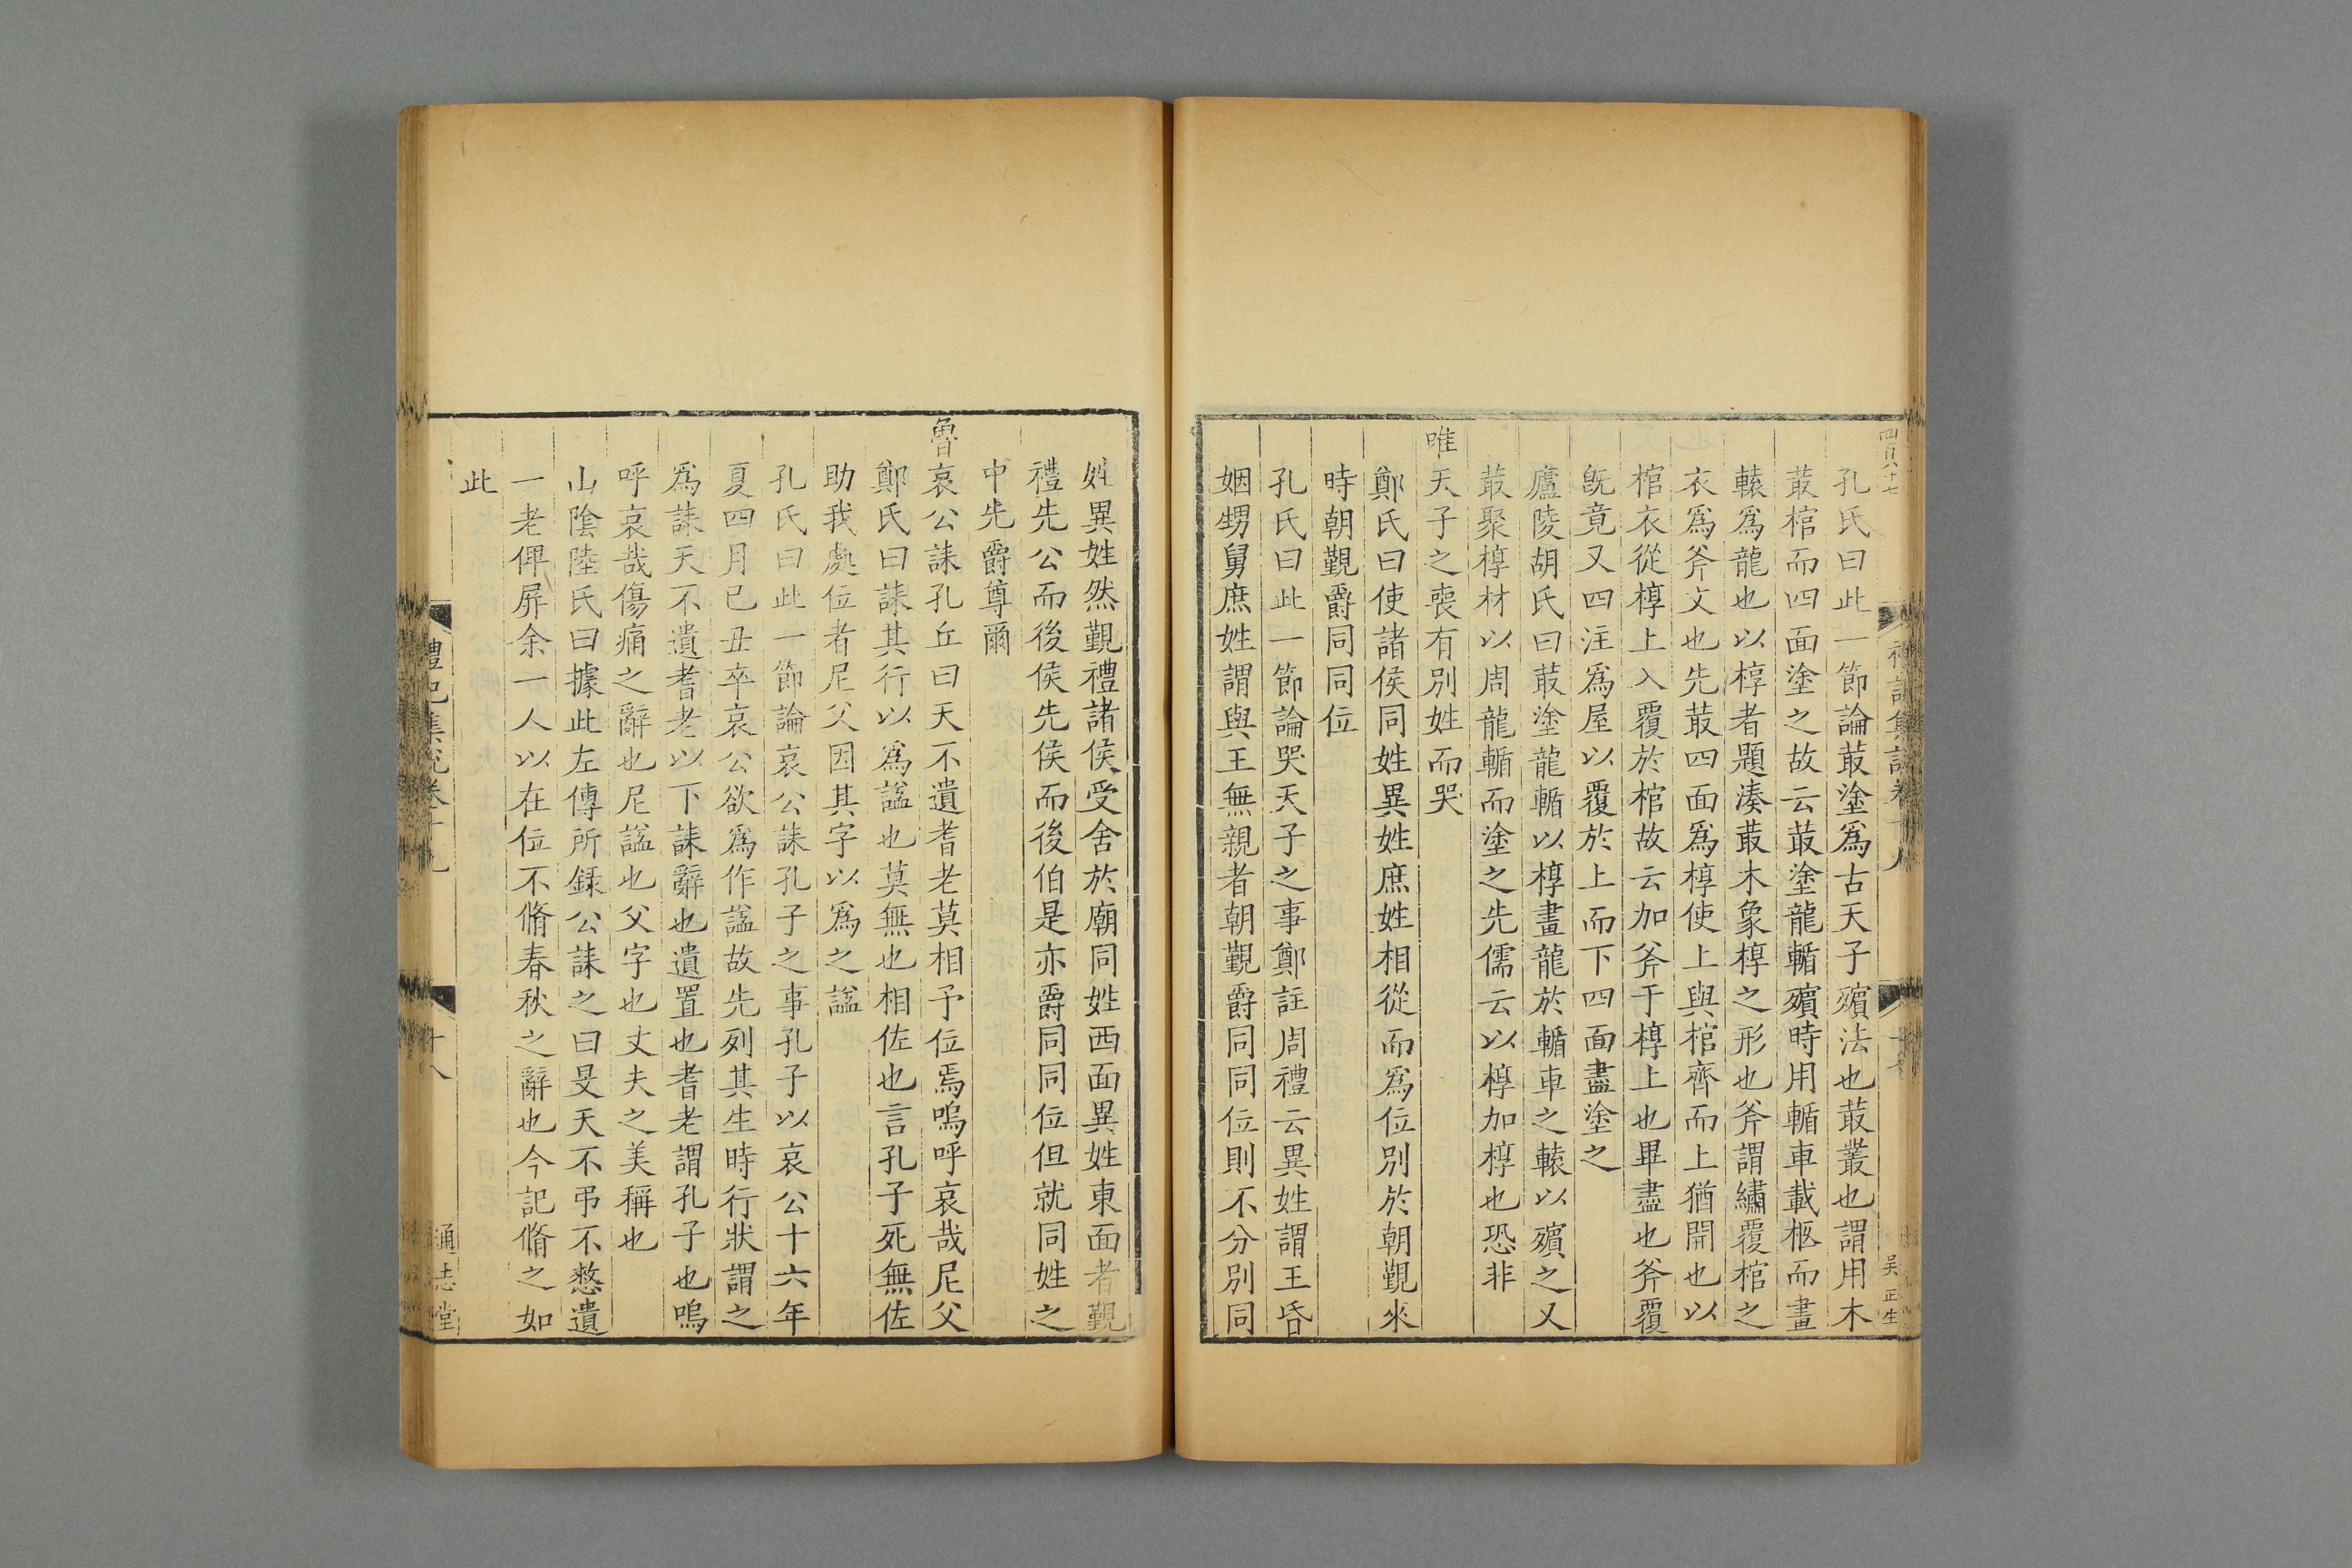 孔氏曰此一節論菆塗爲古天子殯法也菆叢也謂用木
菆棺而四面塗之故云菆塗龍輴殯時用輴車載柩而畫
轅爲龍也以椁者題湊菆木象椁之形也斧謂繡覆棺之
衣爲斧文也先菆四面爲椁使上與棺齊而上猶開也以
棺衣從椁上入覆於棺故云加斧于椁上也畢盡也斧覆
旣竟又四注爲屋以覆於上而下四面盡塗之
廬陵胡氏曰菆塗龍輴以椁畫龍於輴車之轅以殯之又
菆聚椁材以周龍輴而塗之先儒云以椁加椁也恐非
唯天子之喪有別姓而哭
鄭氏曰使諸侯同姓異姓庶姓相從而爲位別於朝覲來
時朝覲爵同同位
孔氏曰此一節論哭天子之事鄭註周禮云異姓謂王昏
姻甥舅庶姓謂與王無親者朝覲爵同同位則不分別同
吳正生
姓異姓然覲禮諸侯受舍於廟同姓西面異姓東面者覲
禮先公而後侯先侯而後伯是亦爵同同位但就同姓之
中先爵尊爾
魯哀公誄孔丘曰天不遺耆老莫相予位焉嗚呼哀哉尼父
鄭氏曰誄其行以爲謚也莫無也相佐也言孔子死無佐
助我處位者尼父因其字以爲之謚
孔氏曰此一節論哀公誄孔子之事孔子以哀公十六年
夏四月已丑卒哀公欲爲作謚故先列其生時行狀謂之
爲誄天不遺耆老以下誄辭也遺置也耆老謂孔子也嗚
呼哀哉傷痛之辭也尼謚也父字也丈夫之美稱也
山陰陸氏曰據此左傳所録公誄之曰旻天不弔不憗遺
一老俾屏余一人以在位不脩春秋之辭也今記脩之如
此
禮記集說卷十九
十八
通志堂